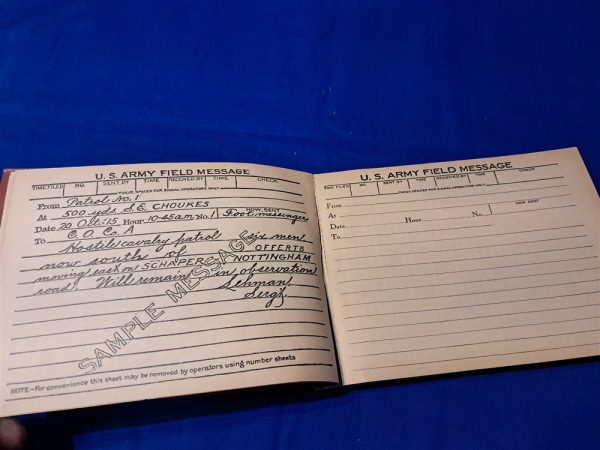 U. S. ARMY FIELD MESSAGE
TIME FILED No. SENT BY TIME RECEIVED BY TIME CHECK
THESE SPACES FOR SIGNAL OPERATORS ONLY
From Patrol No. 1
At 500 yds S.E. CHOUKES
HOW SENT
Date 20 Oct. 15. Hour 10-45 am No. 1 Foot messenger
To C. O. Co. A
Hostile cavalry patrol six men
now south of OFFERTS
moving east on SCHAPER NOTTINGHAM
road. Will remain in observation
Lehman
Sergt.
SAMPLE MESSAGE
NOTE—For convenience this sheet may be removed by operators using number sheets
U. S. ARMY FIELD MESSAGE
TIME FILED No. SENT BY TIME RECEIVED BY TIME CHECK
THESE SPACES FOR SIGNAL OPERATORS ONLY
From
At
HOW SENT
Date Hour No.
To